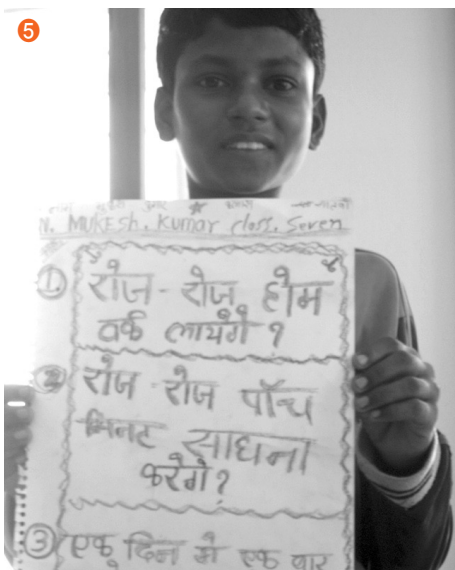 5
N. MUKESh. Kumar class. Seven
① रोज - रोज होम
वर्क लायेंगे ?
② रोज - रोज पॉंच
मिनट साधना
करेगे ?
③ एक दिन में एक बार